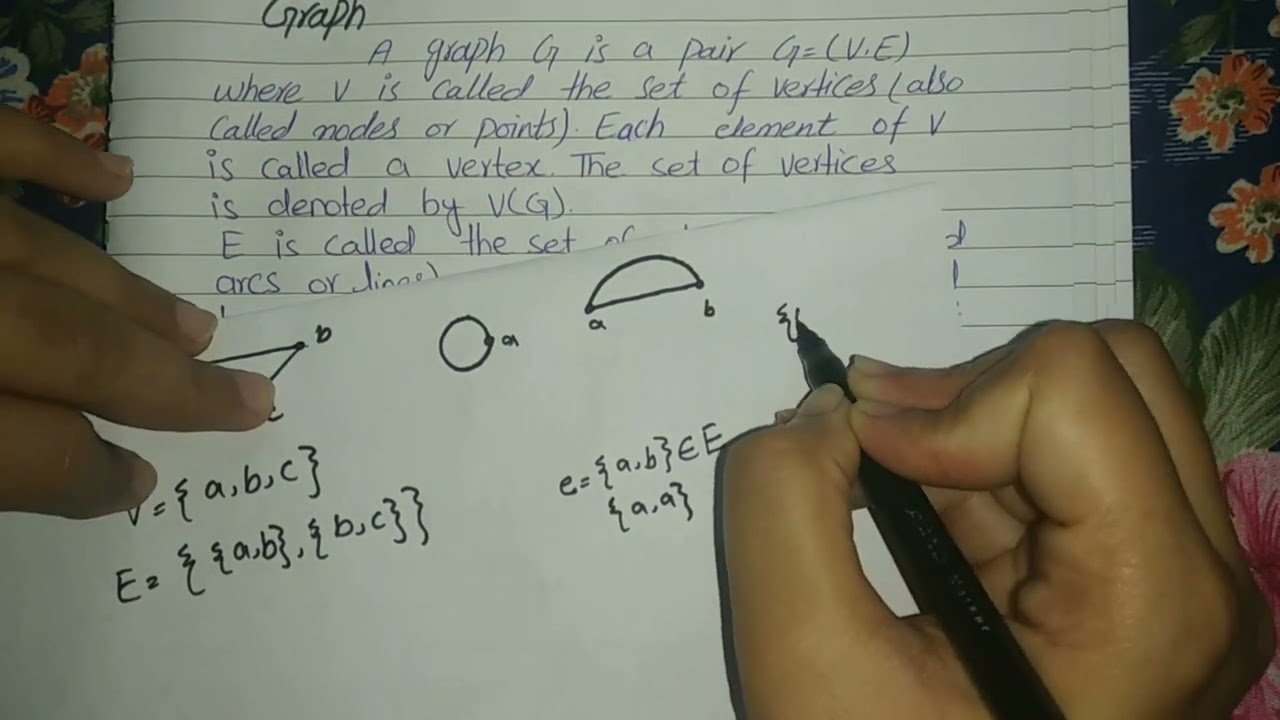 Graph
A graph G is a pair G=(V.E)
where V is called the set of vertices (also
called nodes or points). Each element of V
is called a vertex. The set of vertices
is denoted by V(G).
E is called the set of
arcs or lines)
a b
b
a
c
{(
V={a,b,c}
e={a,b}∈E
{a,a}
E={{a,b},{b,c}}